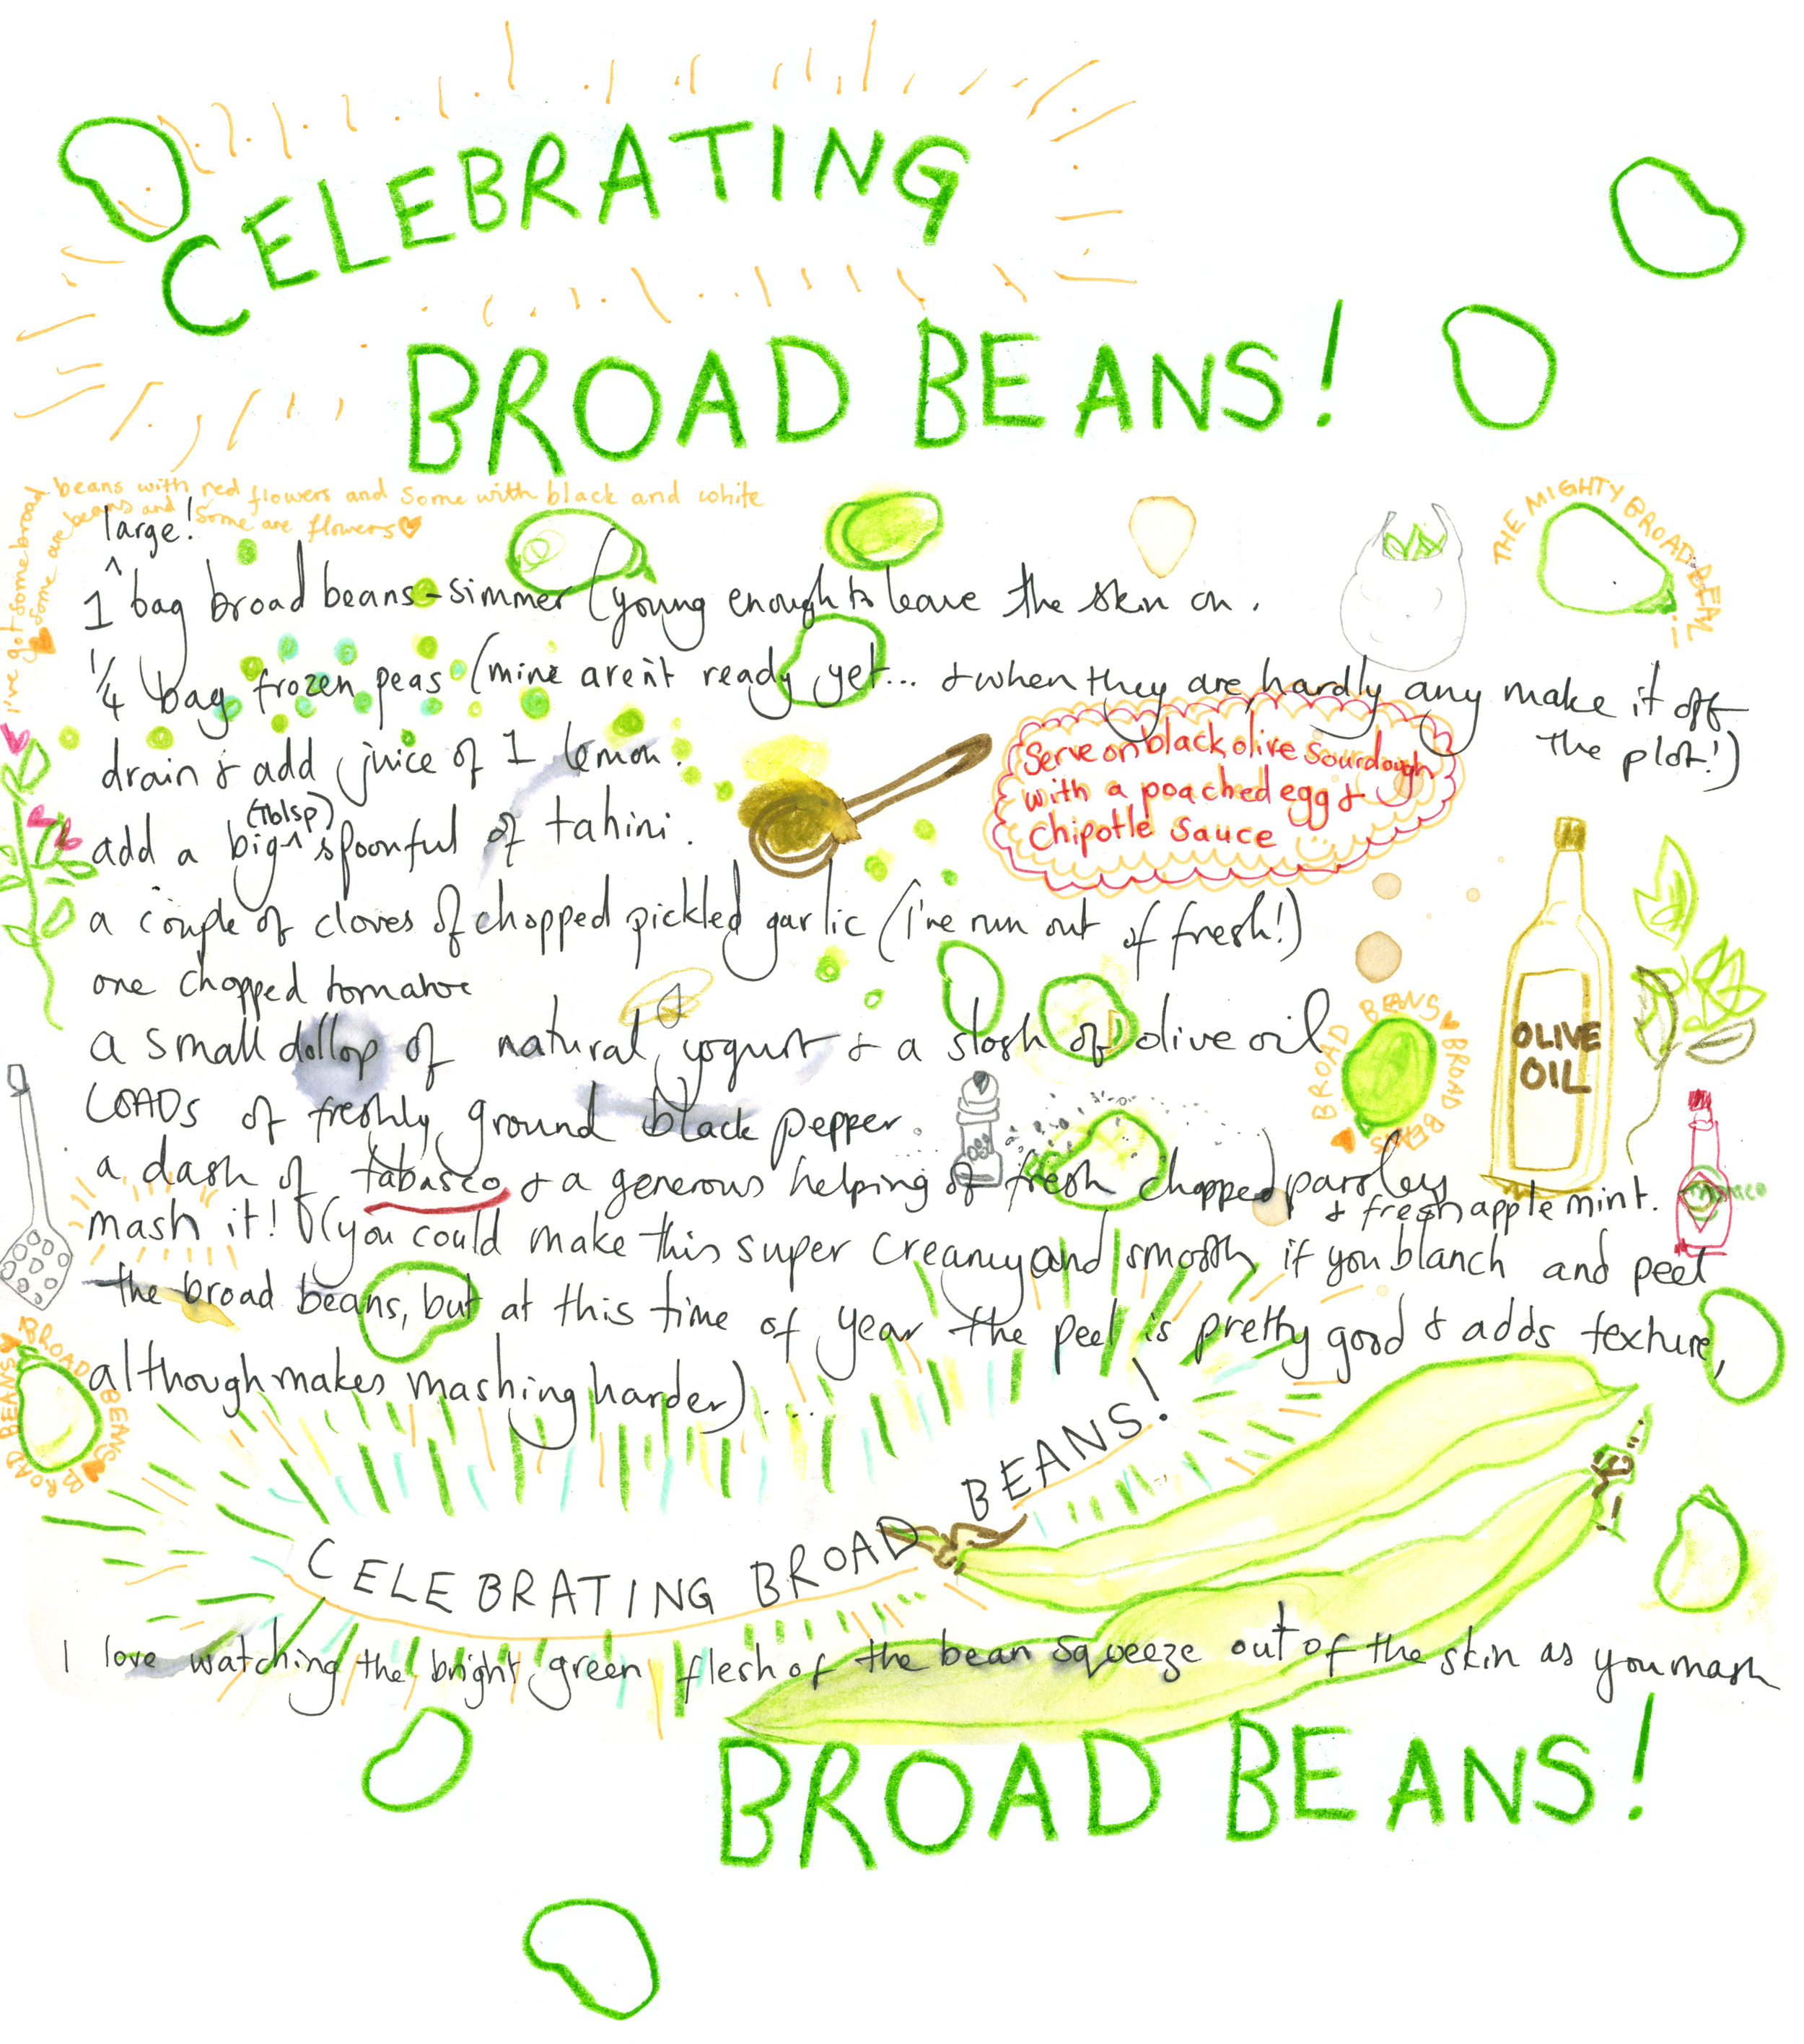 CELEBRATING
BROAD BEANS!
I've got some broad beans with red flowers and some with black and white
some are beans and some are flowers
large!
1 ^ bag broad beans - simmer (young enough to leave the skin on.
1/4 bag frozen peas (mine aren't ready yet... & when they are hardly any make it off
the plot!)
drain & add juice of 1 lemon.
(Tblsp)
add a big ^ spoonful of tahini.
Serve on black olive sourdough
with a poached egg &
chipotle sauce
a couple of cloves of chopped pickled garlic (I've run out of fresh!)
one chopped tomatoe
a small dollop of natural yogurt & a slosh of olive oil
LOADS of freshly ground black pepper.
a dash of tabasco & a generous helping of fresh chopped parsley
& fresh apple mint.
mash it! (you could make this super creamy and smooth if you blanch and peel
the broad beans, but at this time of year the peel is pretty good & adds texture,
although makes mashing harder)....
THE MIGHTY BROAD BEAN!
OLIVE
OIL
BROAD BEANS BROAD BEANS
BROAD BEANS BROAD BEANS
CELEBRATING BROAD BEANS!
I love watching the bright green flesh of the bean squeeze out of the skin as you mash
BROAD BEANS!